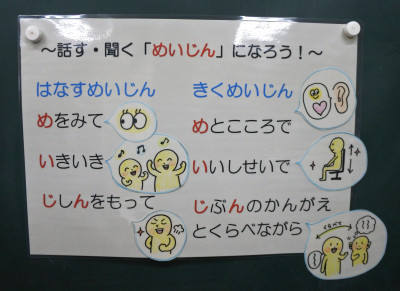 ～話す・聞く「めいじん」になろう！～
はなすめいじん
めをみて
いきいき
じしんをもって
きくめいじん
めとこころで
いいしせいで
じぶんのかんがえ
とくらべながら